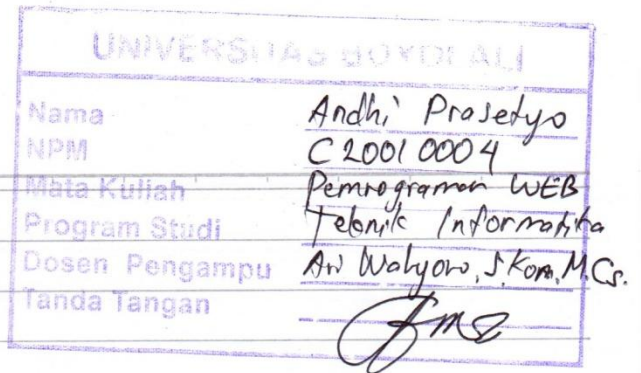 UNIVERSITAS BOYOLALI
Nama Andhi Prasetyo
NPM C20010004
Mata Kuliah Pemrograman WEB
Program Studi Teknik Informatika
Dosen Pengampu Ari Wahyono, S.Kom, M.Cs.
Tanda Tangan